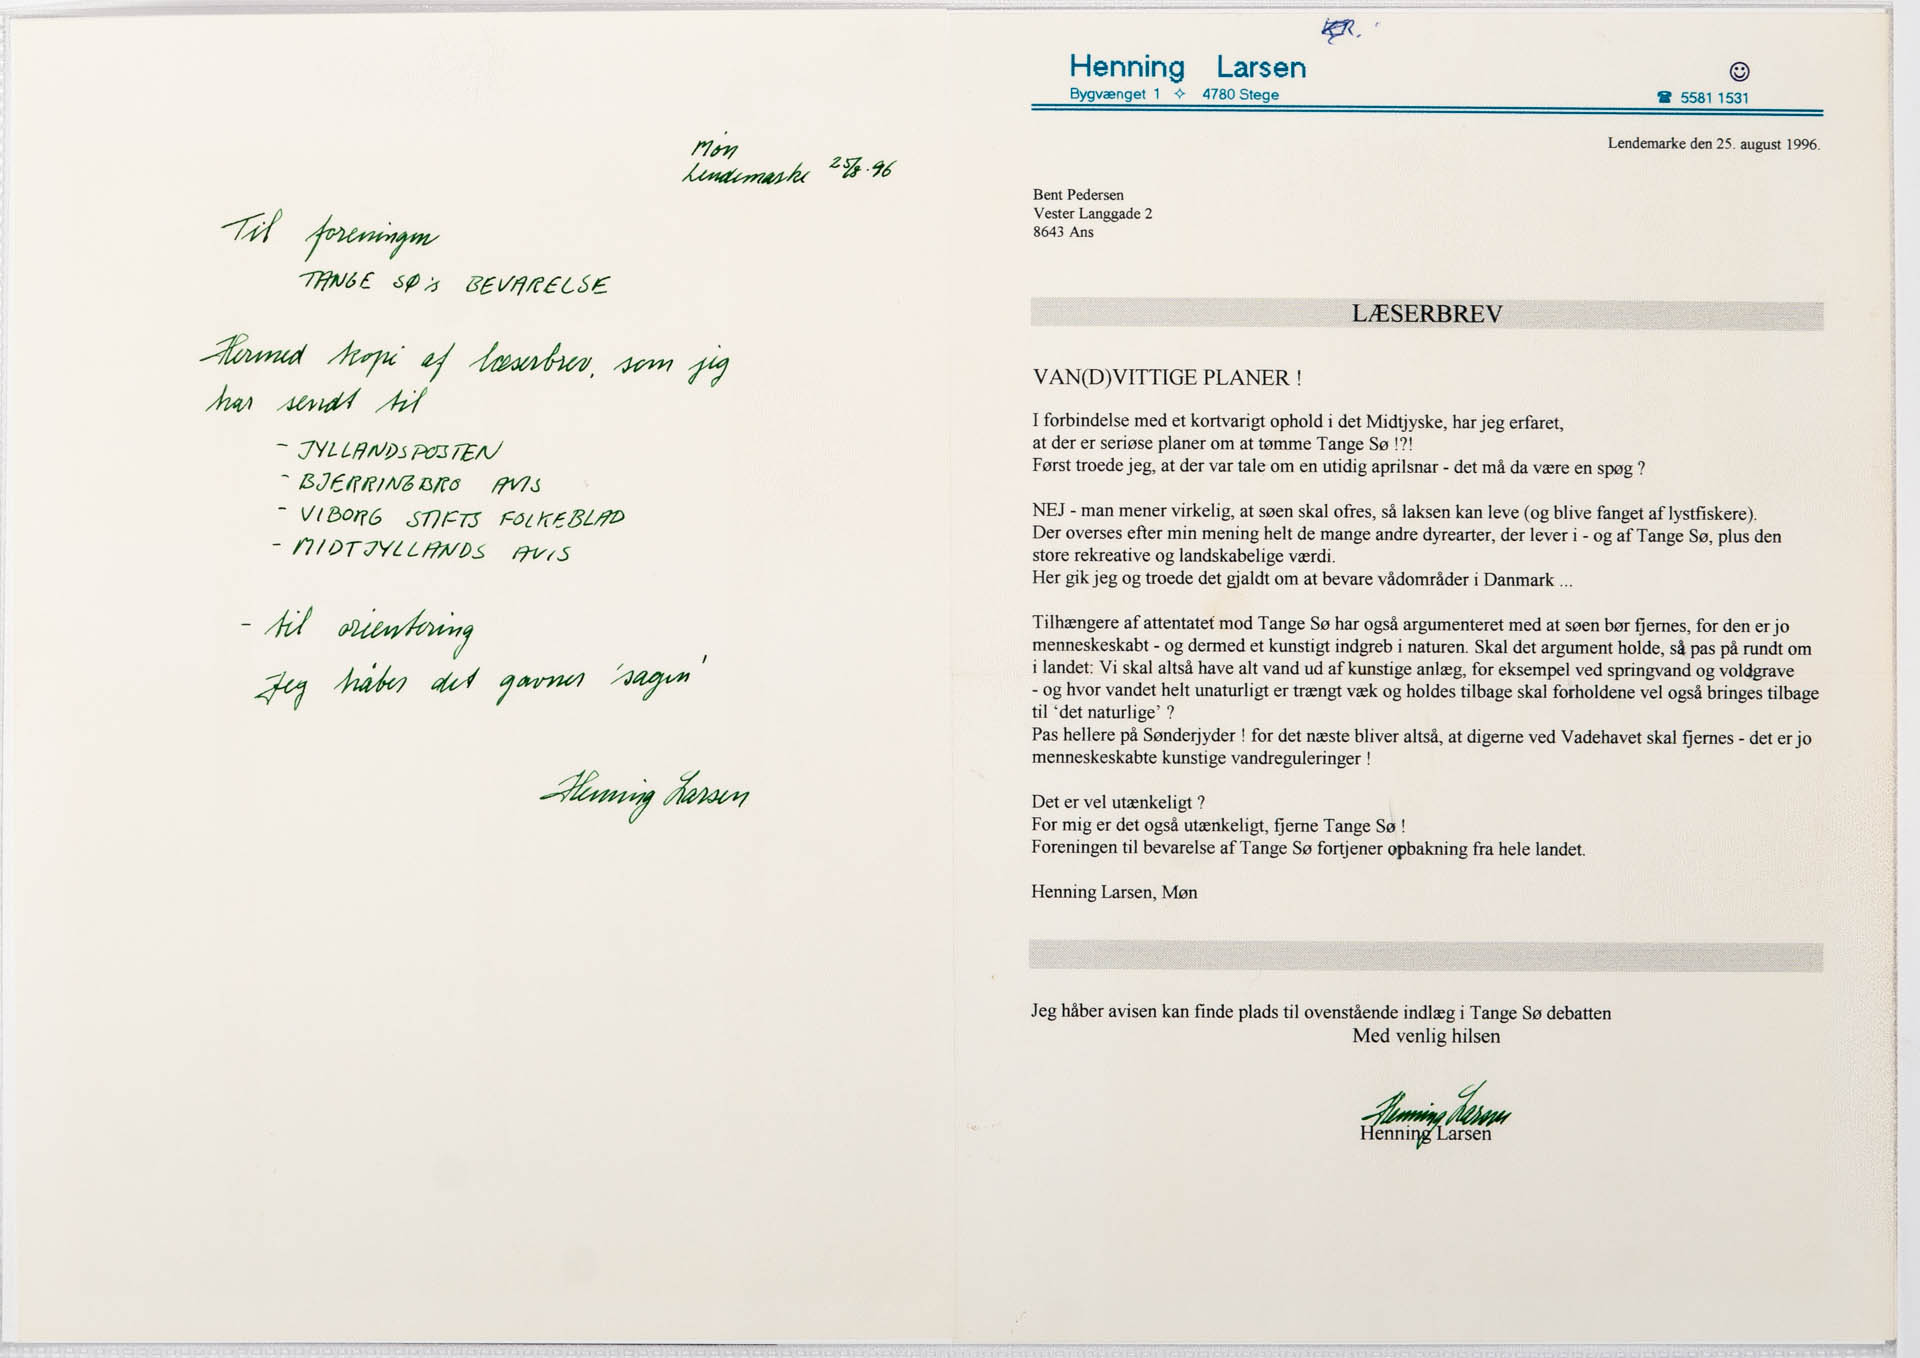 Møn
Lendemarke 25/8-96
Til foreningen
TANGE SØ's BEVARELSE
Hermed kopi af læserbrev, som jeg
har sendt til
- JYLLANDSPOSTEN
- BJERRINGBRO AVIS
- VIBORG STIFTS FOLKEBLAD
- MIDTJYLLANDS AVIS
- til orientering
Jeg håber det gavner 'sagen'
Henning Larsen
Henning Larsen
Bygvænget 1 ✧ 4780 Stege
☎ 5581 1531
Lendemarke den 25. august 1996.
Bent Pedersen
Vester Langgade 2
8643 Ans
LÆSERBREV
VAN(D)VITTIGE PLANER !
I forbindelse med et kortvarigt ophold i det Midtjyske, har jeg erfaret,
at der er seriøse planer om at tømme Tange Sø !?!
Først troede jeg, at der var tale om en utidig aprilsnar - det må da være en spøg ?
NEJ - man mener virkelig, at søen skal ofres, så laksen kan leve (og blive fanget af lystfiskere).
Der overses efter min mening helt de mange andre dyrearter, der lever i - og af Tange Sø, plus den
store rekreative og landskabelige værdi.
Her gik jeg og troede det gjaldt om at bevare vådområder i Danmark ...
Tilhængere af attentatet mod Tange Sø har også argumenteret med at søen bør fjernes, for den er jo
menneskeskabt - og dermed et kunstigt indgreb i naturen. Skal det argument holde, så pas på rundt om
i landet: Vi skal altså have alt vand ud af kunstige anlæg, for eksempel ved springvand og voldgrave
- og hvor vandet helt unaturligt er trængt væk og holdes tilbage skal forholdene vel også bringes tilbage
til ‘det naturlige’ ?
Pas hellere på Sønderjyder ! for det næste bliver altså, at digerne ved Vadehavet skal fjernes - det er jo
menneskeskabte kunstige vandreguleringer !
Det er vel utænkeligt ?
For mig er det også utænkeligt, fjerne Tange Sø !
Foreningen til bevarelse af Tange Sø fortjener opbakning fra hele landet.
Henning Larsen, Møn
Jeg håber avisen kan finde plads til ovenstående indlæg i Tange Sø debatten
Med venlig hilsen
Henning Larsen
Henning Larsen